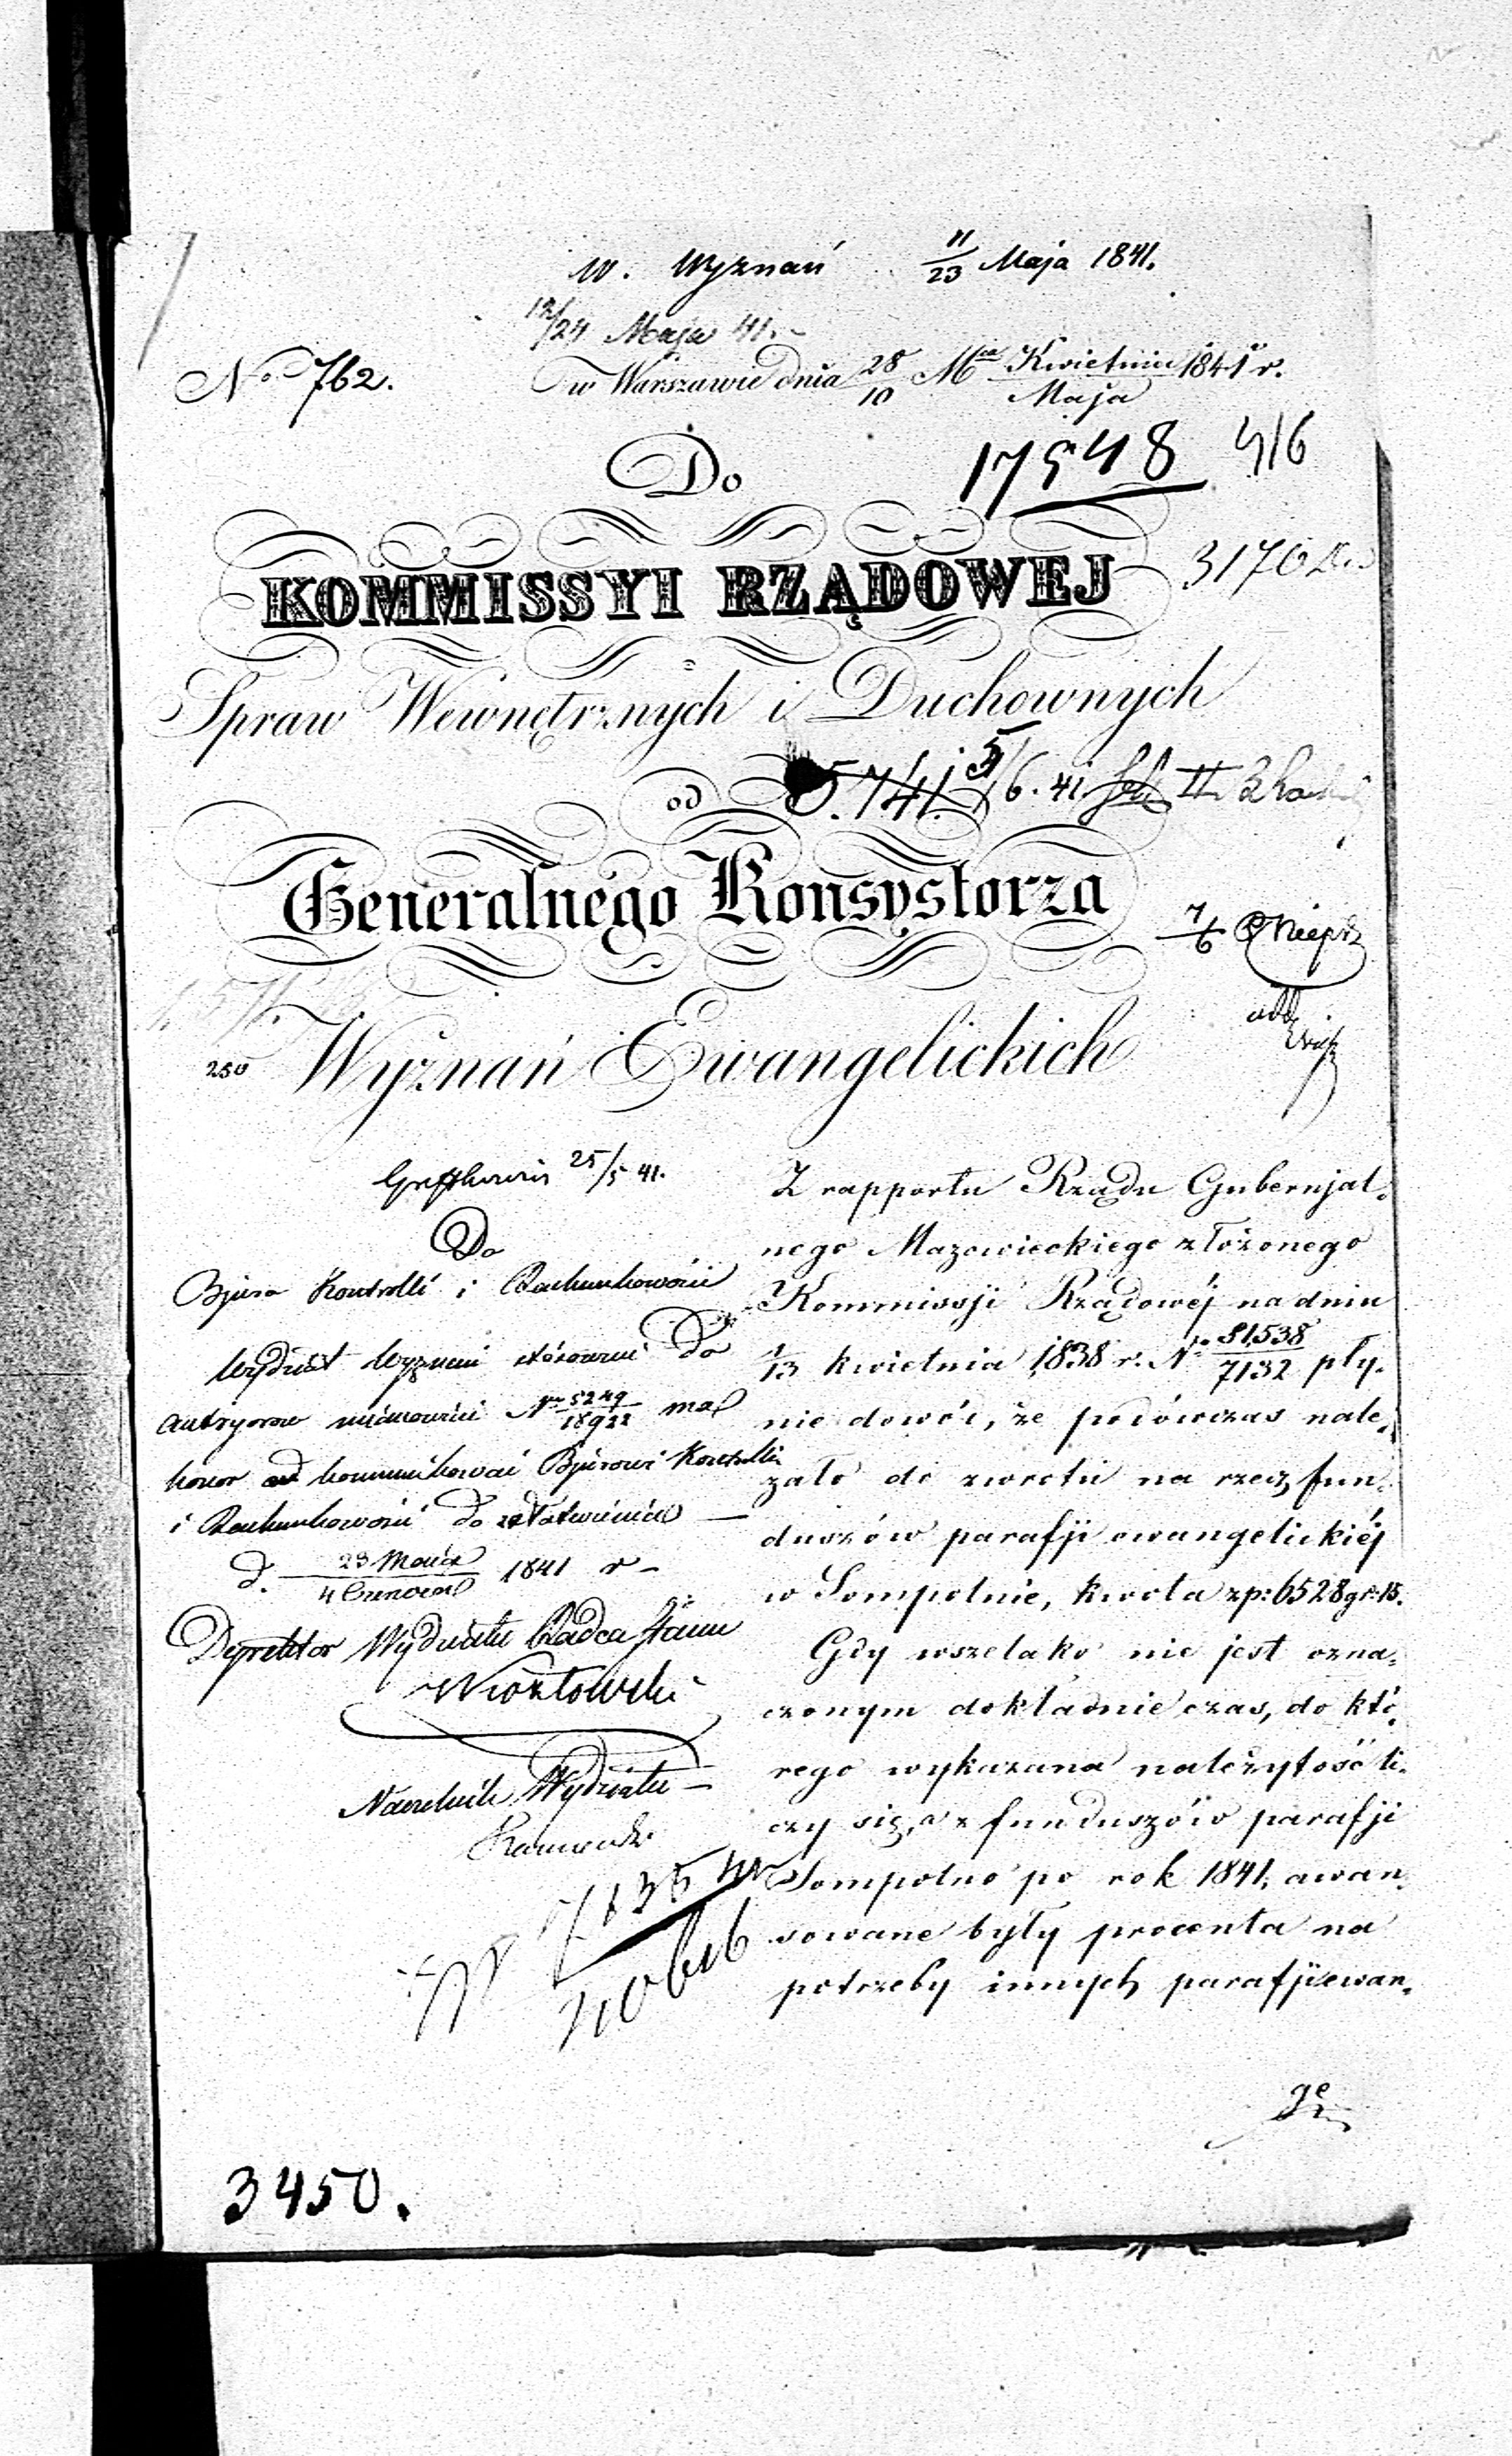 W. Wyznań 11/23 Maja 1841.
12/24 Maja 41.
No 762.
w Warszawie dnia 28/10 Mca Kwietnia/Maja 1841 r.
Do
17548 416
KOMMISSYI RZĄDOWEJ
3170
Spraw Wewnętrznych i Duchownych
od
5.741. 5/6. 41. II
Generalnego Konsystorza
7/6
Wyznań Ewangelickich
250
25/5 41.
Do
Bjura Kontrolli i Rachunkowości
Wydział Wyznań stósownie do
No 5249/18922 ma
honor kommunikować Bjórowi Kontrolli
i Rachunkowości do załatwienia —
d. 23 Maja/4 Czerwca 1841 r –
Dyrektor Wydziału Radca Stanu
Naczelnik Wydziału
Z rapportu Rządu Gubernjal-
nego Mazowieckiego złożonego
Kommissji Rządowéj na dniu
1/13 kwietnia 1838 r. No 81,538/7132 pły-
nie dowód, że podówczas nale-
żało do zwrotu na rzecz fun-
duszów parafji ewangelickiéj
w Sompolnie, kwota zp: 6528 gr: 15.
Gdy wszelako nie jest ozna-
czonym dokładnie czas, do któ-
rego wykazana należytość li-
czy się, a z funduszów parafji
Sompolno po rok 1841, awan-
sowane były procenta na
potrzeby innych parafji ewan-
ge
3450.